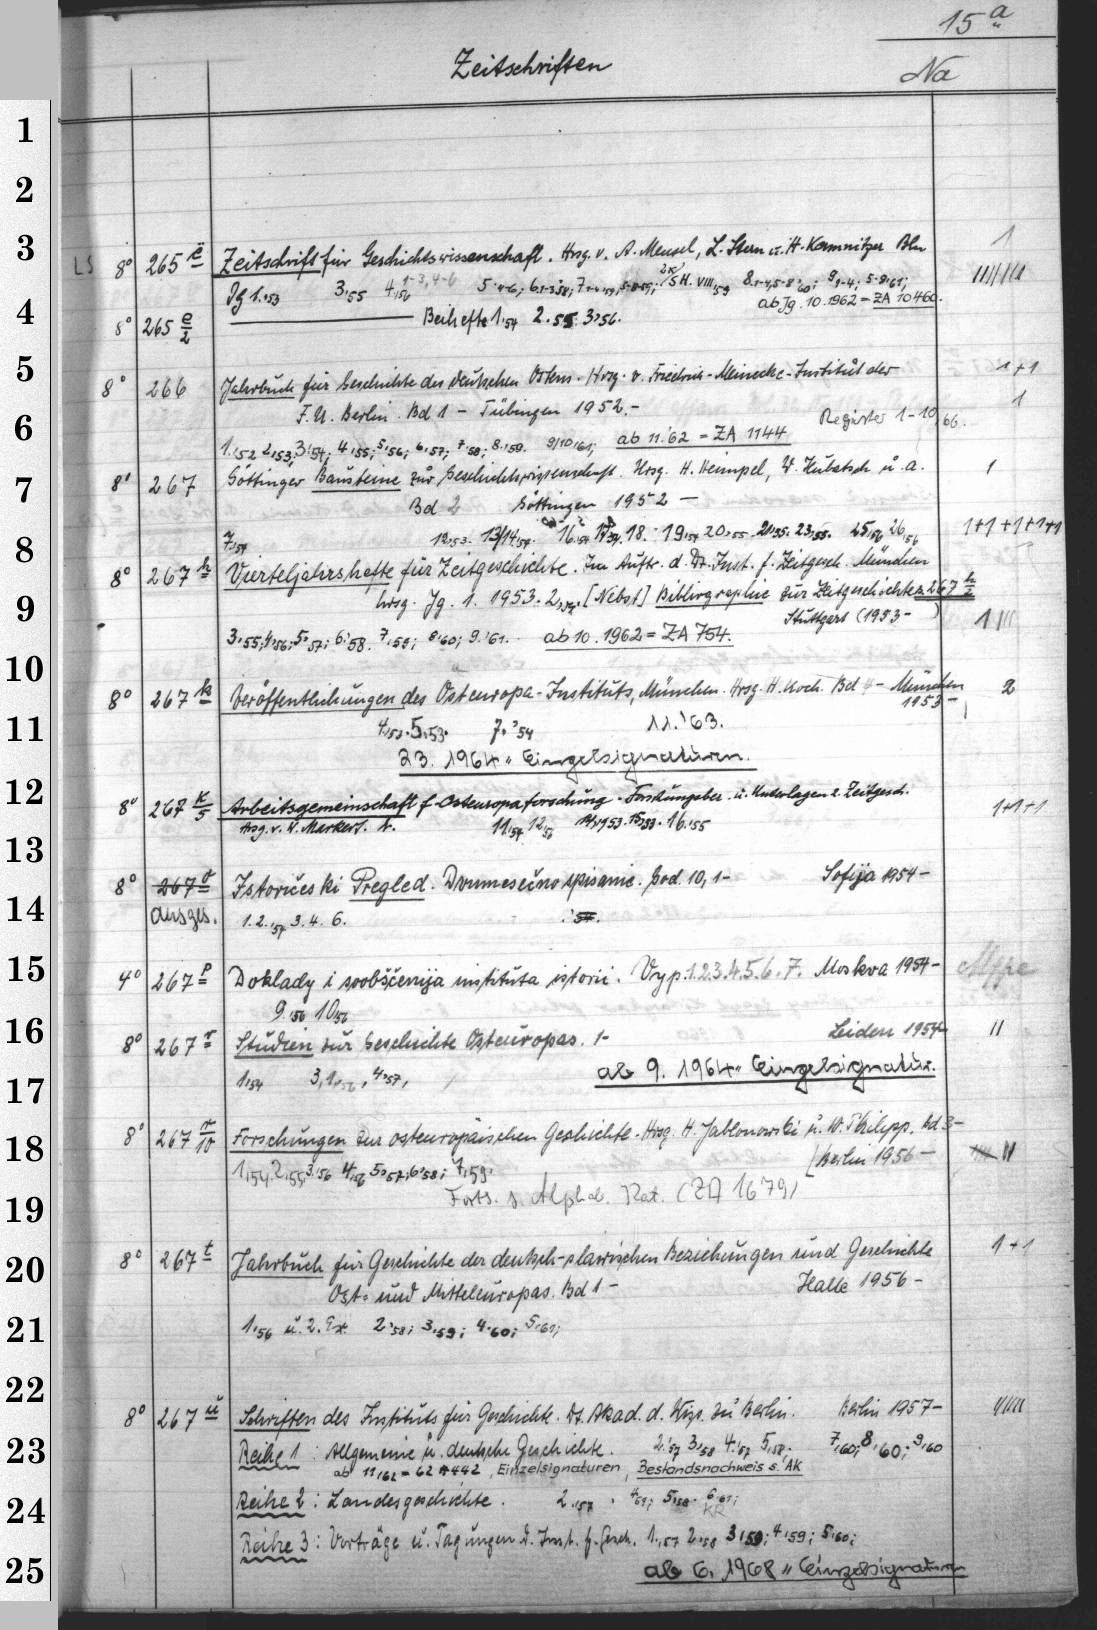 15 a
Zeitschriften
Na
1
2
3
LS 8° 265 e Zeitschrift für Geschichtswissenschaft. Hrsg. v. A. Meusel, L. Stern u. H. Kamnitzer Bln 1
Jg 1.'53 3,55 4,56 1-3,4-6
ab Jg. 10.1962 = ZA 10460.
4
8° 265 e/2 Beihefte 1,54 2.55 3,56.
5
8° 266 Jahrbuch für Geschichte des deutschen Ostens. Hrsg. v. Friedrich-Meinecke-Institut der 1+1
F. U. Berlin. Bd 1 - Tübingen 1952.- 1
Register 1-10,66.
6
1.'52 2,53; 3,54; 4,55; 5,56; 6,57; 7,58; 8,59. 9/10,61; ab 11.'62 = ZA 1144
7
8° 267 Göttinger Bausteine zur Geschichtswissenschaft. Hrsg. H. Heimpel, W. Hubatsch u. a. 1
Bd 2 Göttingen 1952 -
7,54 12,53. 13/14,54. 16,54 17,54. 18. 19,54 20,55 21,55. 23,55. 25,56 26,56 1+1+1+1+1
8
8° 267 h Vierteljahrshefte für Zeitgeschichte. Im Auftr. d. Dt. Inst. f. Zeitgesch. München
9
hrsg. Jg. 1. 1953. 2,54. [Nebst] Bibliographie zur Zeitgeschichte = 267 h/2
Stuttgart (1953- )
3,55; 4,56; 5,57; 6,58. 7,59; 8,60; 9,61. ab 10.1962 = ZA 754.
10
8° 267 k Veröffentlichungen des Osteuropa-Instituts, München. Hrsg. H. Koch. Bd 4 - München 1953 - 2
11
4,53. 5,53. 7,54 11.'63.
23. 1964 " Einzelsignaturen.
12
8° 267 k/5 Arbeitsgemeinschaft f. Osteuropaforschung. Forschungsber. u. Unterlagen z. Zeitgesch. 1+1+1
Hrsg. v. W. Markert. 11,54 12,53 14,1953. 15,53. 16,55
13
8° 267 o Istoričeski Pregled. Dvumesečno spisanie. God. 10, 1- Sofija 1954-
14
ausges. 1. 2.,54 3. 4. 6.
15
4° 267 p Doklady i soobščenija instituta istorii. Vyp. 1.2.3.4.5.6.7. Moskva 1954-
9,56 10,56
16
8° 267 r Studien zur Geschichte Osteuropas. 1- Leiden 1954- II
17
1,54 3,1,56, 4,57, ab 9. 1964 " Einzelsignatur.
18
8° 267 r/10 Forschungen zur osteuropäischen Geschichte. Hrsg. H. Jablonowski u. W. Philipp. Bd 3- II
Berlin 1956-
1,54. 2,55, 3,56 4,56 5,57; 6,58; 7,59.
Forts. s. Alphab. Kat. (ZA 1679)
19
20
8° 267 t Jahrbuch für Geschichte der deutsch-slawischen Beziehungen und Geschichte 1+1
Ost- und Mitteleuropas. Bd 1 - Halle 1956 -
21
1,56 u. 2. Ex. 2,58; 3,59; 4,60; 5,61;
22
8° 267 u Schriften des Instituts für Geschichte. Dt. Akad. d. Wiss. zu Berlin. Berlin 1957-
23
Reihe 1: Allgemeine u. deutsche Geschichte. 2,57 3,58 4,57 5,58. 7,60; 8,60; 9,60
ab 11,62 = 62 A 442, Einzelsignaturen, Bestandsnachweis s. AK
24
Reihe 2: Landesgeschichte. 2,57. 4,59; 5,58 6,61;
KR
Reihe 3: Vorträge u. Tagungen d. Inst. f. Gesch. 1,57 2,58 3,59; 4,59; 5,60;
25
ab 6. 1968 " Einzelsignaturen